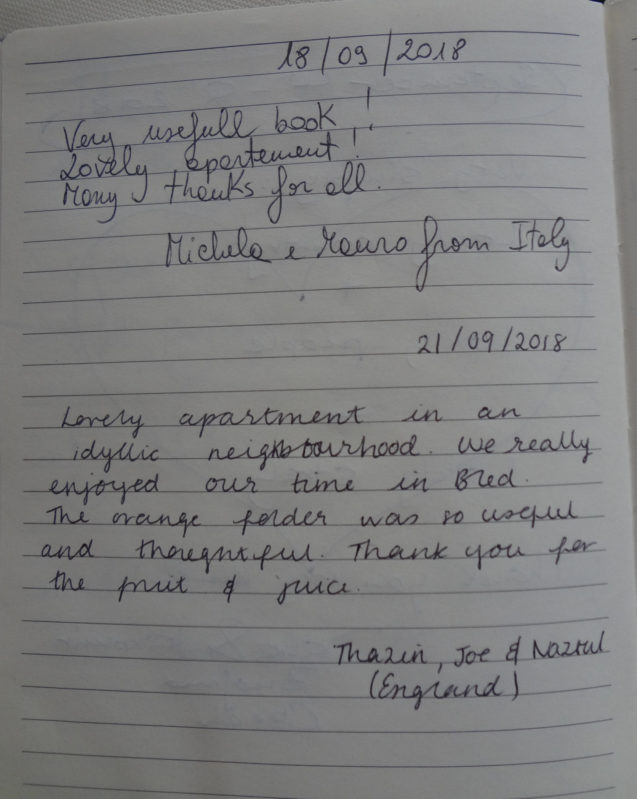 18/09/2018
Very usefull book!
Lovely apartement!
Many thanks for all.
Michela e Mauro from Italy
21/09/2018
Lovely apartment in an
idyllic neighbourhood. We really
enjoyed our time in Bled.
The orange folder was so useful
and thoughtful. Thank you for
the fruit & juice.
Thazin, Joe & Nazrul
(England)